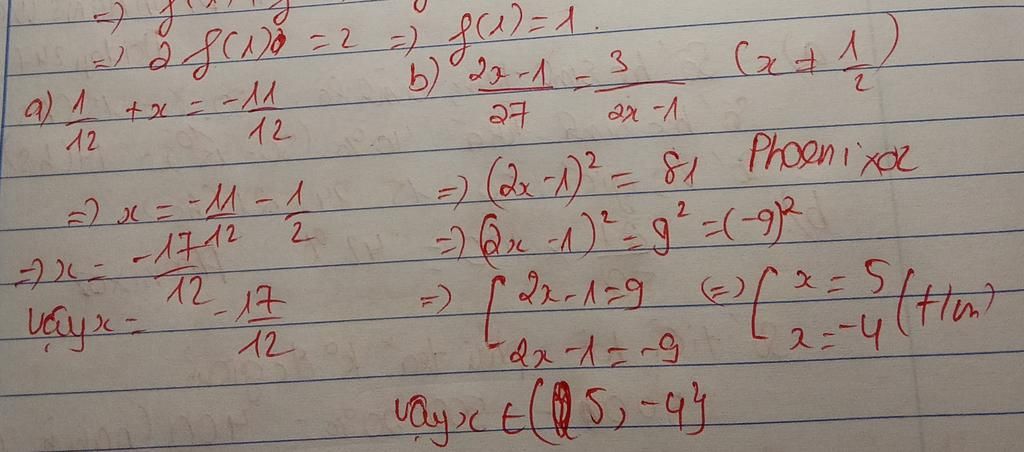 => 2 f(1) = 2 => f(1) = 1.
a) 1/12 + x = -11/12
=> x = -11/12 - 1/2
=> x = -17/12
Vậy x = -17/12
b) (2x-1)/27 = 3/(2x-1) (x ≠ 1/2)
=> (2x-1)² = 81 Phoenixoz
=> (2x-1)² = 9² = (-9)²
=> [ 2x-1=9 (=> [ x = 5
2x-1=-9 x = -4 (t/m)
Vậy x ∈ { 5, -4}